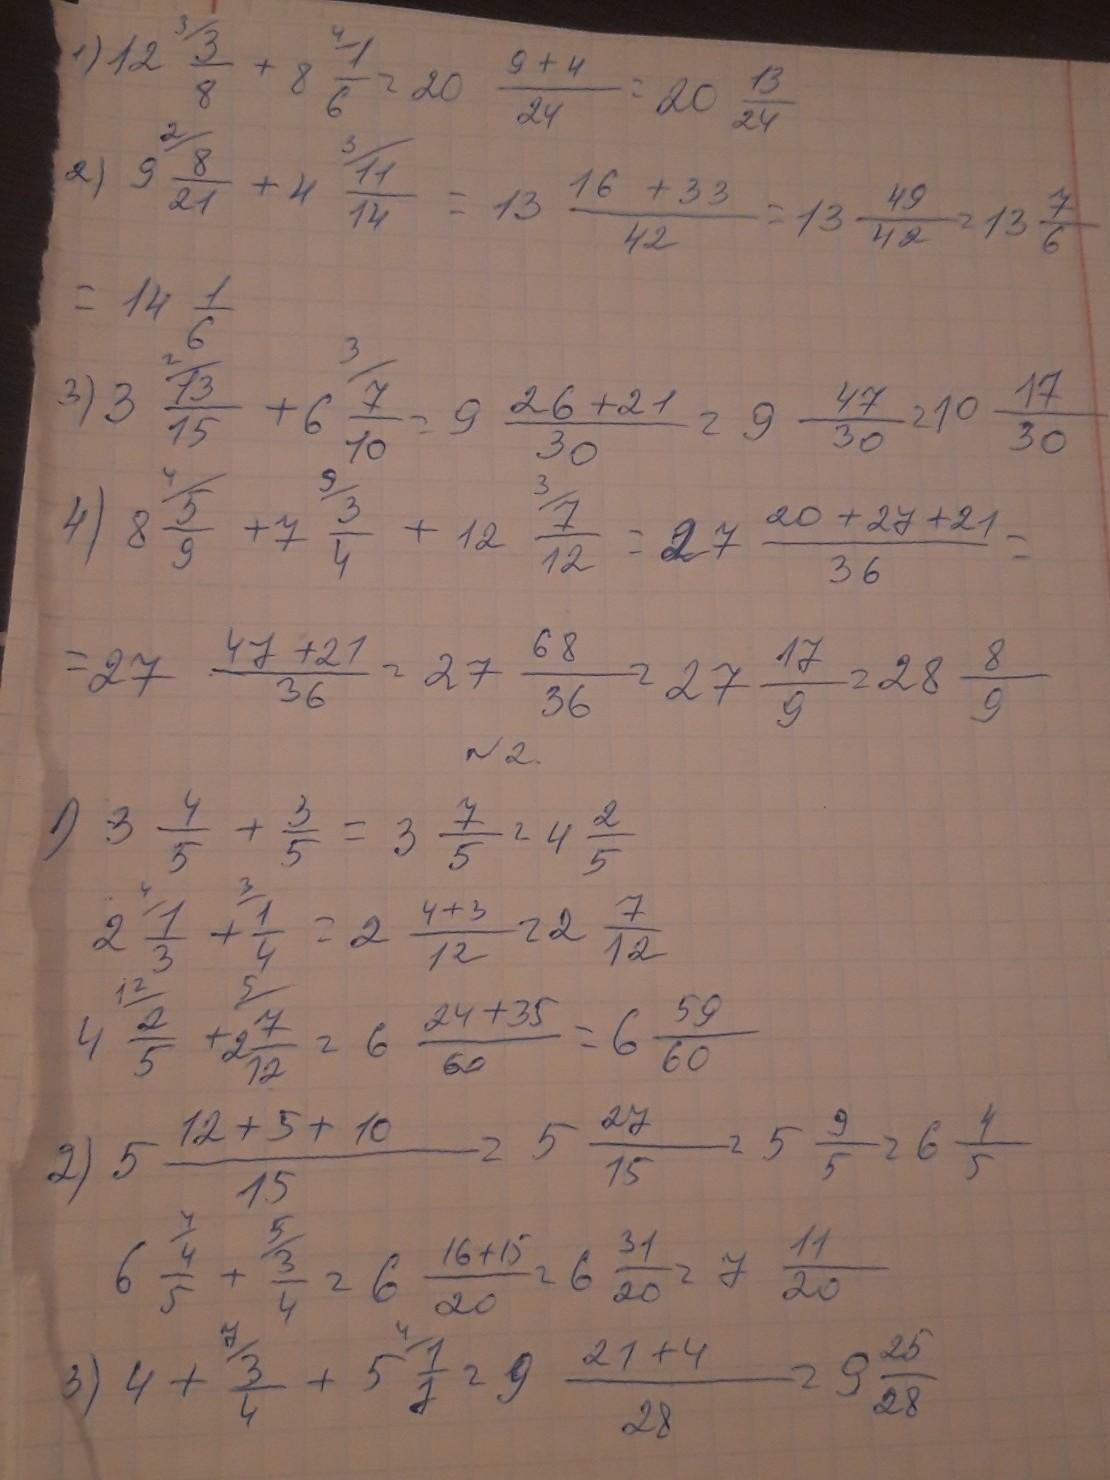 1) 12 ³⁄ 3/8 + 8 ⁴⁄ 1/6 = 20 (9+4)/24 = 20 13/24
2) 9 ²⁄ 8/21 + 4 ³⁄ 11/14 = 13 (16+33)/42 = 13 49/42 = 13 7/6
= 14 1/6
3) 3 ²⁄ 13/15 + 6 ³⁄ 7/10 = 9 (26+21)/30 = 9 47/30 = 10 17/30
4) 8 ⁴⁄ 5/9 + 7 ⁹⁄ 3/4 + 12 ³⁄ 7/12 = 27 (20+27+21)/36 =
= 27 (47+21)/36 = 27 68/36 = 27 17/9 = 28 8/9
N2.
1) 3 4/5 + 3/5 = 3 7/5 = 4 2/5
2 ⁴⁄ 1/3 + ³⁄ 1/4 = 2 (4+3)/12 = 2 7/12
4 ¹²⁄ 2/5 + 2 ⁵⁄ 7/12 = 6 (24+35)/60 = 6 59/60
2) 5 (12+5+10)/15 = 5 27/15 = 5 9/5 = 6 4/5
6 ⁴⁄ 4/5 + ⁵⁄ 3/4 = 6 (16+15)/20 = 6 31/20 = 7 11/20
3) 4 + ⁷⁄ 3/4 + 5 ⁴⁄ 1/7 = 9 (21+4)/28 = 9 25/28